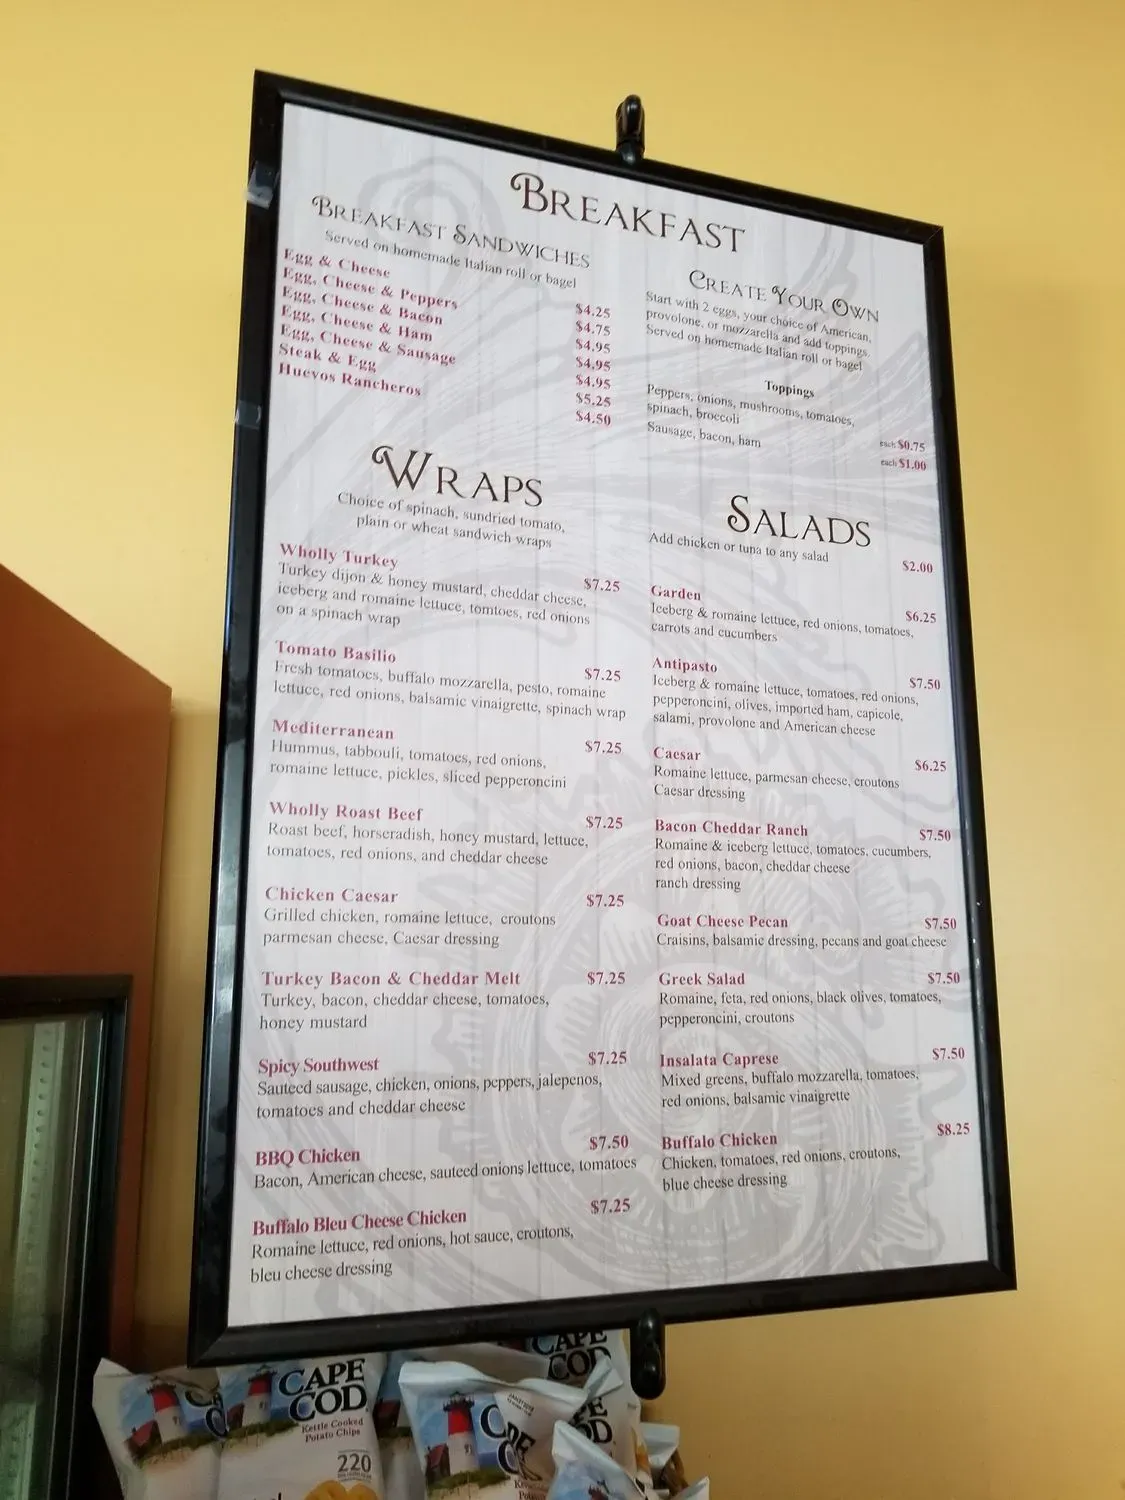 BREAKFAST
BREAKFAST SANDWICHES
Served on homemade Italian roll or bagel
Egg & Cheese $4.25
Egg, Cheese & Peppers $4.75
Egg, Cheese & Bacon $4.95
Egg, Cheese & Ham $4.95
Egg, Cheese & Sausage $4.95
Steak & Egg $5.25
Huevos Rancheros $4.50
CREATE YOUR OWN
Start with 2 eggs, your choice of American,
provolone, or mozzarella and add toppings.
Served on homemade Italian roll or bagel
Toppings
Peppers, onions, mushrooms, tomatoes,
spinach, broccoli each $0.75
Sausage, bacon, ham each $1.00
WRAPS
Choice of spinach, sundried tomato,
plain or wheat sandwich wraps
Wholly Turkey $7.25
Turkey dijon & honey mustard, cheddar cheese,
iceberg and romaine lettuce, tomtoes, red onions
on a spinach wrap
Tomato Basilio $7.25
Fresh tomatoes, buffalo mozzarella, pesto, romaine
lettuce, red onions, balsamic vinaigrette, spinach wrap
Mediterranean $7.25
Hummus, tabbouli, tomatoes, red onions,
romaine lettuce, pickles, sliced pepperoncini
Wholly Roast Beef $7.25
Roast beef, horseradish, honey mustard, lettuce,
tomatoes, red onions, and cheddar cheese
Chicken Caesar $7.25
Grilled chicken, romaine lettuce, croutons
parmesan cheese, Caesar dressing
Turkey Bacon & Cheddar Melt $7.25
Turkey, bacon, cheddar cheese, tomatoes,
honey mustard
Spicy Southwest $7.25
Sauteed sausage, chicken, onions, peppers, jalepenos,
tomatoes and cheddar cheese
BBQ Chicken $7.50
Bacon, American cheese, sauteed onions lettuce, tomatoes
Buffalo Bleu Cheese Chicken $7.25
Romaine lettuce, red onions, hot sauce, croutons,
bleu cheese dressing
SALADS
Add chicken or tuna to any salad $2.00
Garden $6.25
Iceberg & romaine lettuce, red onions, tomatoes,
carrots and cucumbers
Antipasto $7.50
Iceberg & romaine lettuce, tomatoes, red onions,
pepperoncini, olives, imported ham, capicole,
salami, provolone and American cheese
Caesar $6.25
Romaine lettuce, parmesan cheese, croutons
Caesar dressing
Bacon Cheddar Ranch $7.50
Romaine & iceberg lettuce, tomatoes, cucumbers,
red onions, bacon, cheddar cheese
ranch dressing
Goat Cheese Pecan $7.50
Craisins, balsamic dressing, pecans and goat cheese
Greek Salad $7.50
Romaine, feta, red onions, black olives, tomatoes,
pepperoncini, croutons
Insalata Caprese $7.50
Mixed greens, buffalo mozzarella, tomatoes,
red onions, balsamic vinaigrette
Buffalo Chicken $8.25
Chicken, tomatoes, red onions, croutons,
blue cheese dressing
CAPE
COD
Kettle Cooked
Potato Chips
220
CAPE
COD